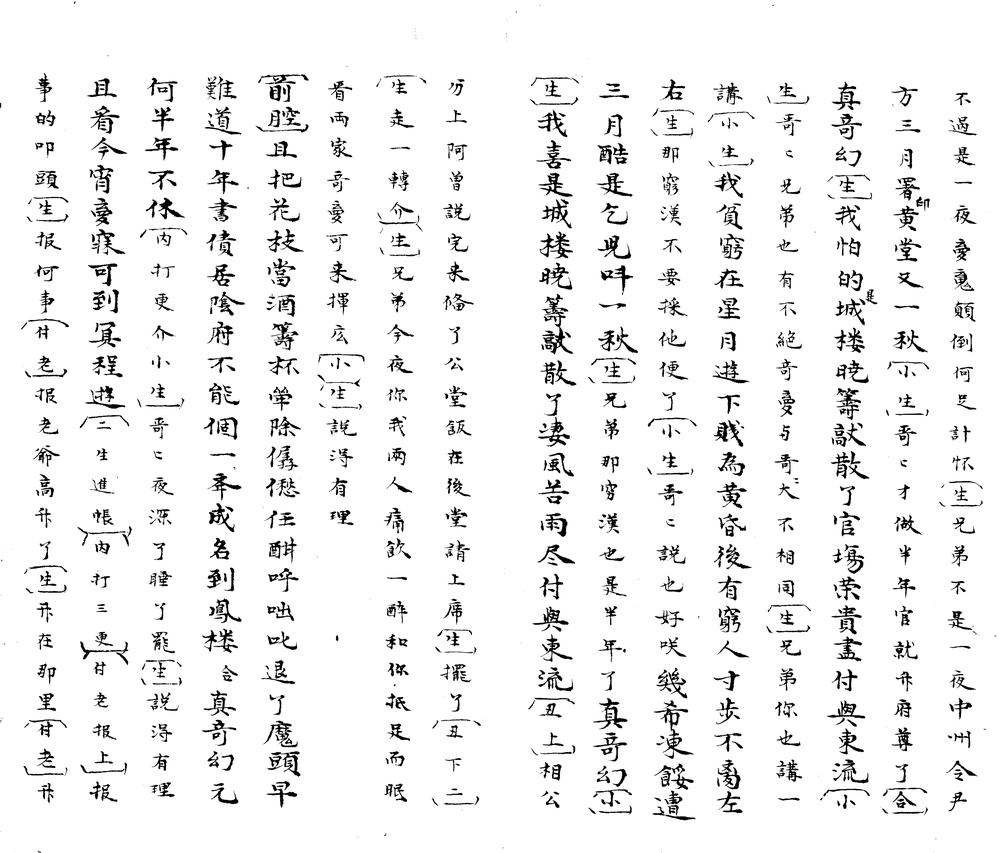 不過是一夜憂鬼顛倒何足計怀生兄弟不是一夜中州令尹
方三月署印黄堂又一秋小生哥〻才做半年官就升府尊了合
真奇幻生我怕的是城楼暁籌敲散了官場荣貴盡付與東流小
生哥〻兄弟也有不絕奇憂与哥〻大不相同生兄弟你也講一
講小生我貧窮在星月遊下賤為黄昏後有窮人寸步不离左
右生那窮漢不要採他便了小生哥〻説也好咲幾希凍餒遭
三月酷是乞児呌一秋生兄弟那穷漢也是半年了真奇幻小
生我喜是城楼暁籌敲散了凄風苦雨尽付與東流丑上相公
方上阿曾説完来俻了公堂飯在後堂請上席生擺了丑下二
生走一轉介生兄弟今夜你我两人痛飲一醉和你抵足而眠
看两家奇憂可来揮庅小生説得有理
前腔且把花枝當酒籌杯筞除僝僽任酣呼咄叱退了魔頭早
難道十年書債居陰府不能個一弄成名到鳳楼合真奇幻元
何半年不休内打更介小生哥〻夜深了睡了罷生説得有理
且看今宵憂寐可到冥程遊二生進帳内打三更付老报上报
事的叩頭生报何事付老报老爺高升了生升在那里付老升